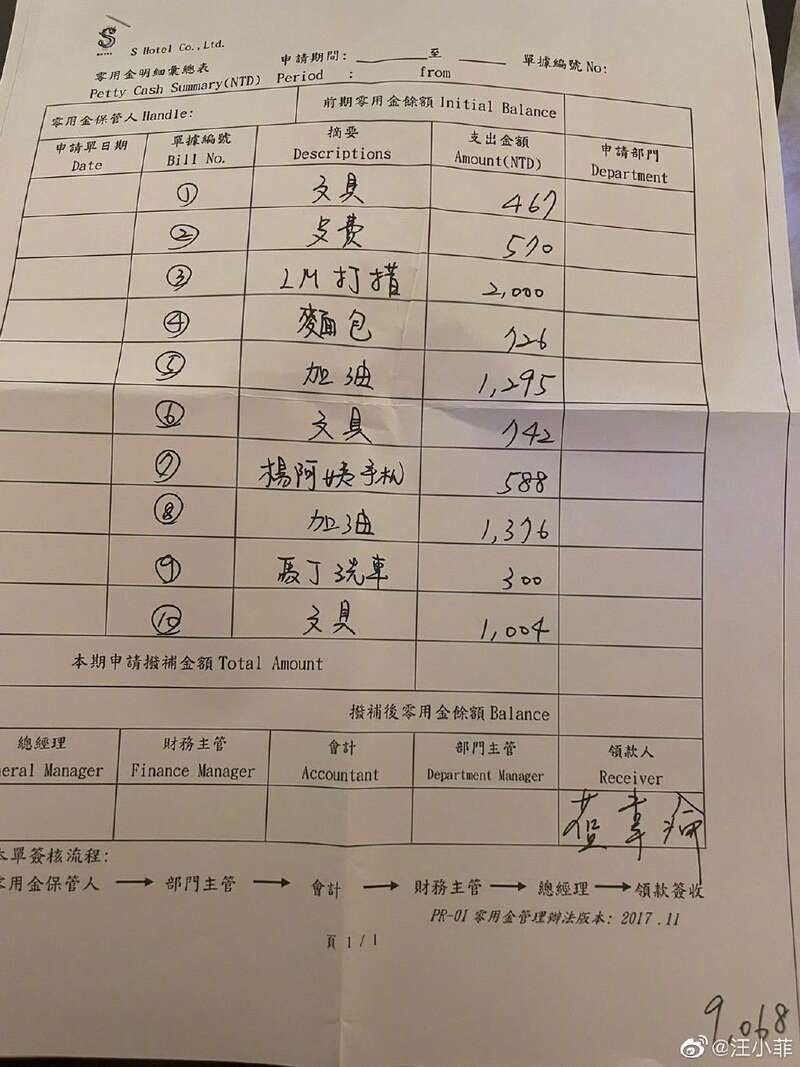 S
S Hotel Co.,Ltd.
零用金明細彙總表
Petty Cash Summary(NTD)
申請期間: 至
Period : from
單據編號 No:
零用金保管人 Handle: 前期零用金餘額 Initial Balance
申請單日期 單據編號 摘要 支出金額 申請部門
Date Bill No. Descriptions Amount(NTD) Department
① 文具 467
② 費 570
③ LM 打措 2,000
④ 麵包 726
⑤ 加油 1,295
⑥ 文具 742
⑦ 楊阿姨手机 588
⑧ 加油 1,376
⑨ 馬丁洗車 300
⑩ 文具 1,004
本期申請撥補金額 Total Amount
撥補後零用金餘額 Balance
總經理 財務主管 會計 部門主管 領款人
neral Manager Finance Manager Accountant Department Manager Receiver
本單簽核流程:
零用金保管人 → 部門主管 → 會計 → 財務主管 → 總經理 → 領款簽收
PR-01 零用金管理辦法版本: 2017.11
頁 1 / 1
9,068
@汪小菲